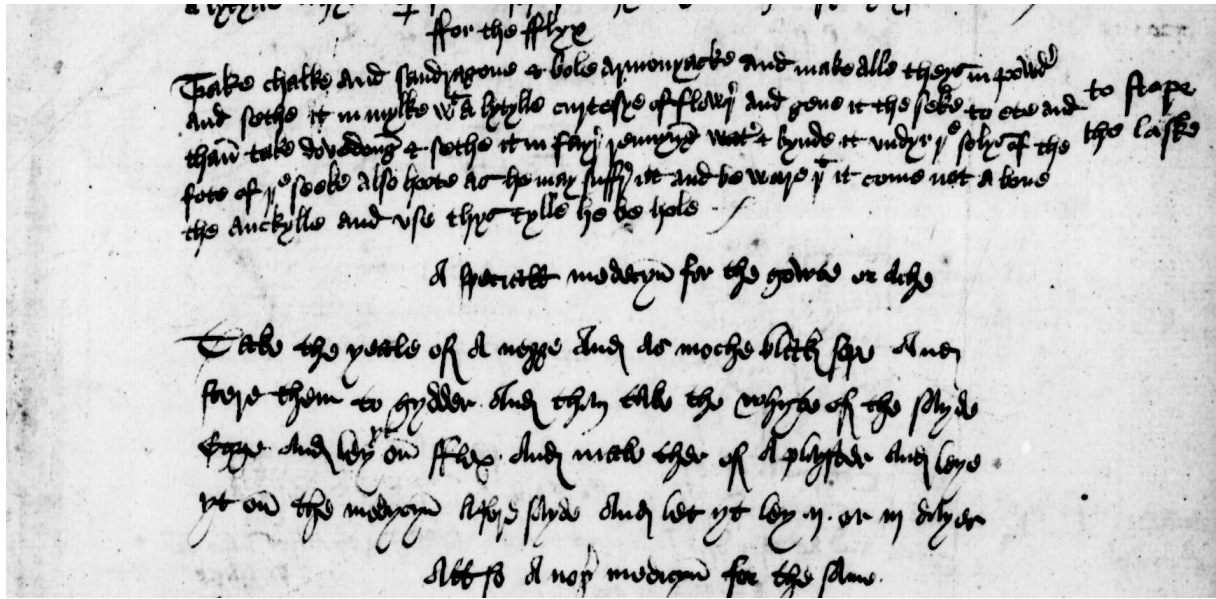 ffor the fflyx
Take chalke and sandragone & bole armonyacke and make alle thys in powdr
and sethe it in mylke wt a lytylle curtesye of flowr and geve it the seke to ete and
to stope
than take dovedong & sethe it in fayr rennyng watr & bynde it undyr ye solys of the
the laske
fote of ye seeke also hoote as he may suffr itt and be ware yt it come not a bove
the anckylle and use thys tylle he be hole
A speciall medecyn for the gowte or ache
Take the yeale of A negge And as moche blacke sope And
stere them to gydder And than take the whyte of the sayde
Egge And ley yt on fflex And make ther of A playster And leye
yt on the medycyn Afore sayde And let yt ley ij or iij dayes
All so A nor medicyn for the same